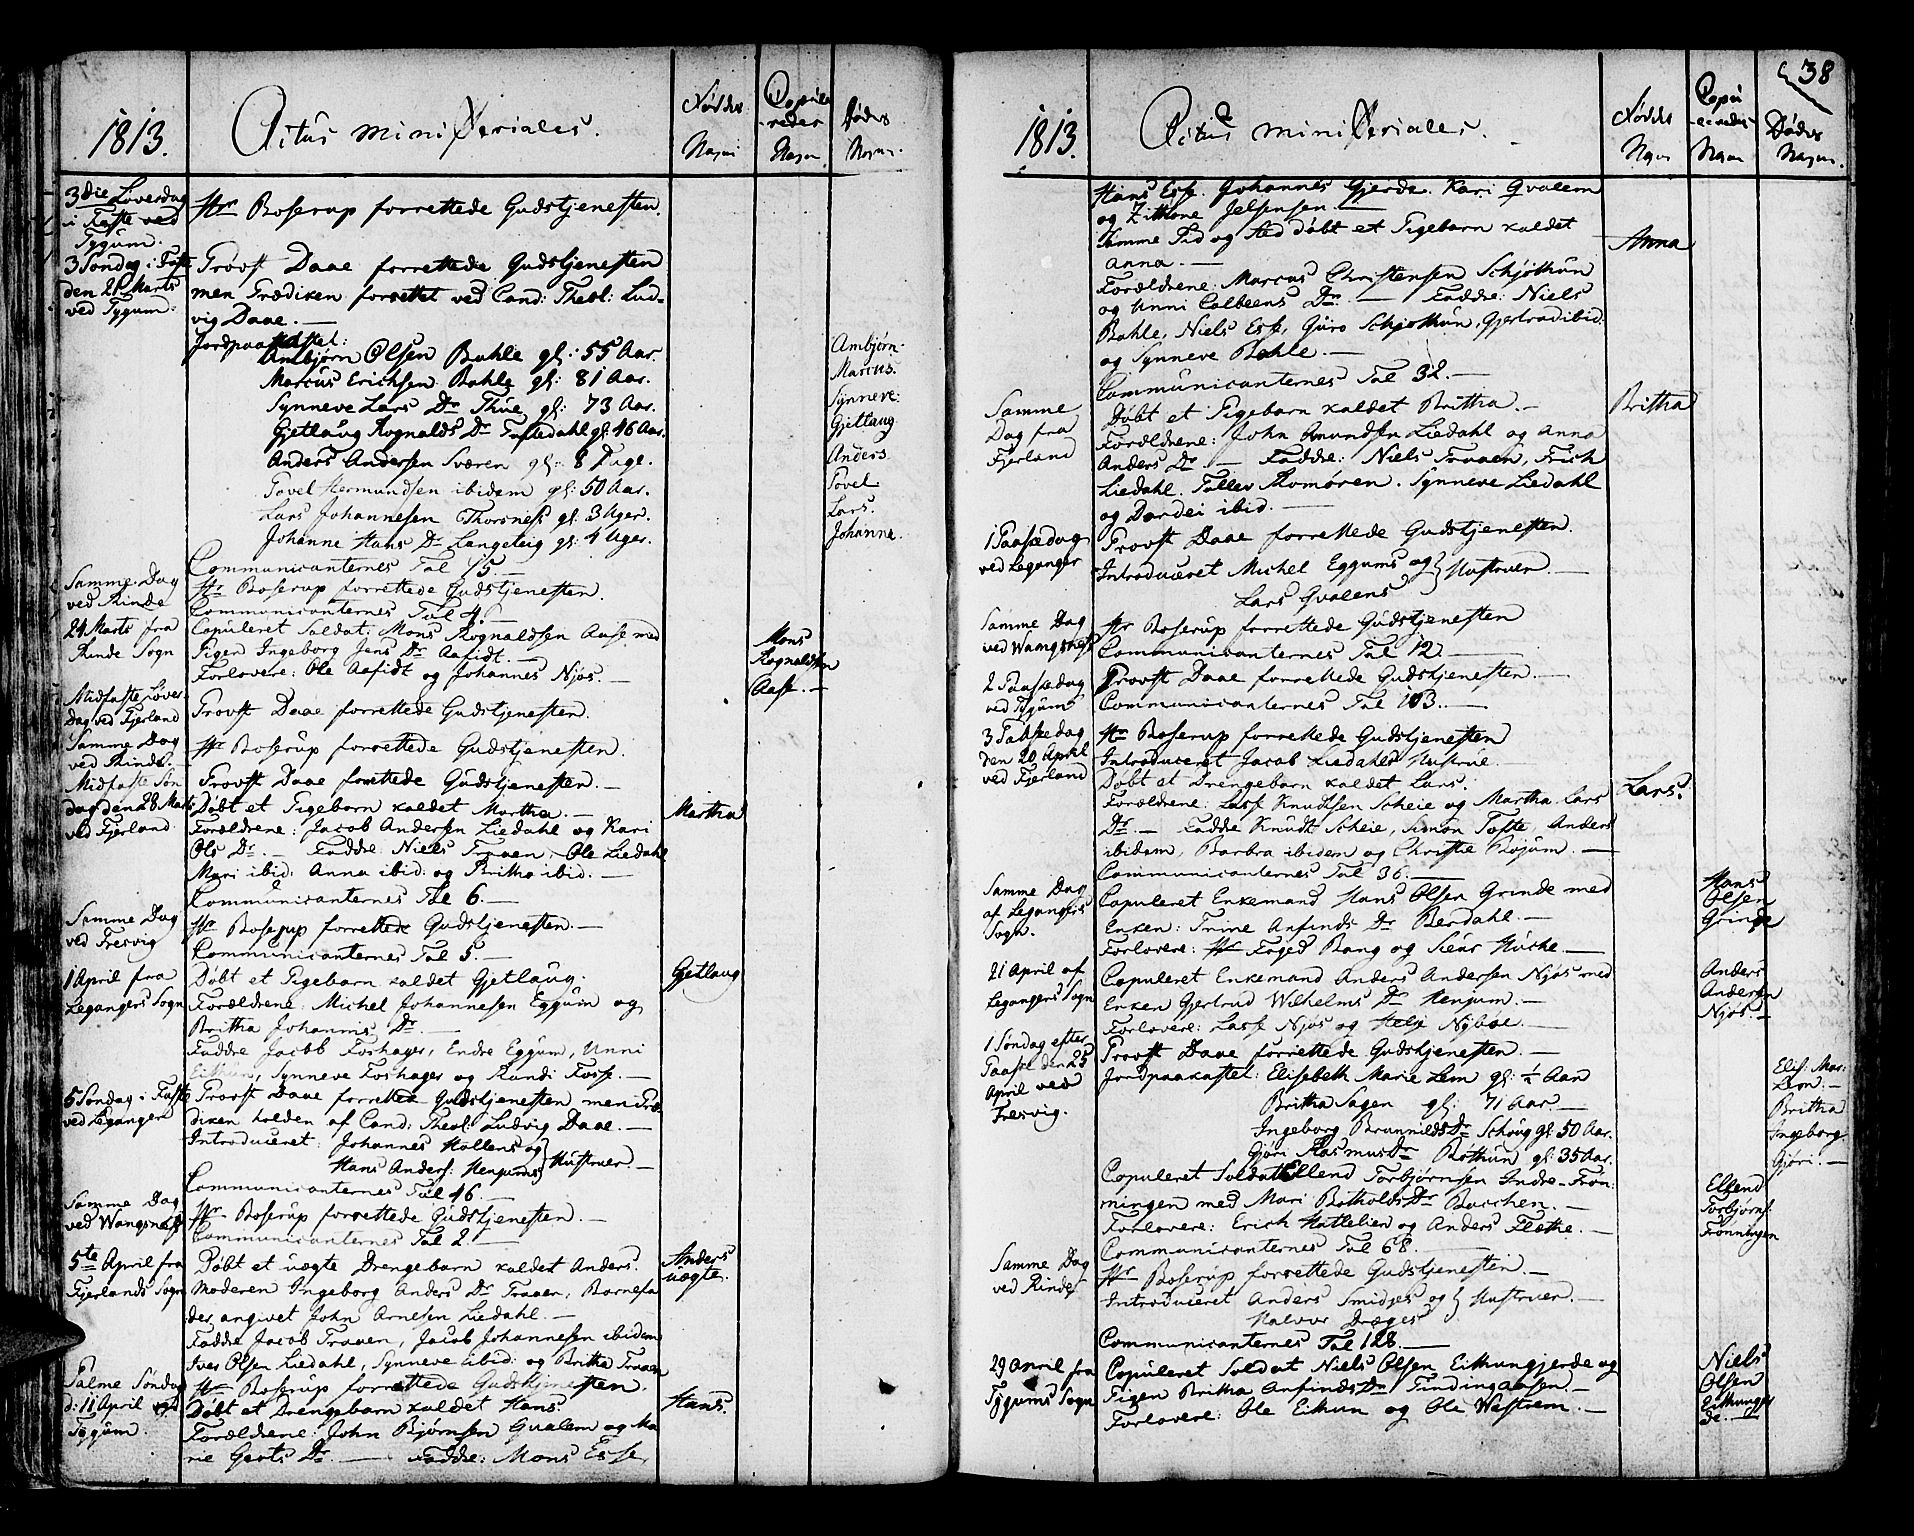 1813.
Actus ministeriales.
Føddes Navn
Copuleredes Navn.
Dødes Navn.
3die Løverdag
i Faste ved
Tygum.
Hr Boserup forrettede Gudstjenesten.
3 Søndag i Faste
den 21 Marts
ved Tygum.
Provst Daae forrettede Gudstjenesten
men Prædiken forrettet ved Cand: Theol: Lud-
vig Daae. —
Jordpaakastet:
Ambjørn Olsen Bahle gl: 55 Aar.
Ambjørn.
Marcus Erichsen Bahle gl: 81 Aar.
Marcus.
Synneve Lars Dr Thue gl: 73 Aar.
Synneve.
Gjetlaug Rognalds Dr gl: 46 Aar.
Gjetlaug
Anders Andersen Sværen gl: 8 Dage.
Anders
Povel Hermundsen ibidem gl: 50 Aar.
Povel
Lars Johannesen Thorsnes gl: 3 Uger.
Lars.
Johanne Hans Dr Langeteig gl: 4 Uger.
Johanne.
Communicanternes Tal 15. —
Samme Dag
ved Rinde
Hr Boserup forrettede Gudstjenesten.
Communicanternes Tal 4. —
24 Marts fra
Rinde Sogn
Copuleret Soldat: Mons Rognaldsen Aase med
Pigen Ingeborg Jens Dr Aafidt. —
Forlovere: Ole Aafidt og Johannes Njøs. —
Mons
Rognaldsen
Aase. —
Midfaste Løver-
dag ved Fjerland
Provst Daae forrettede Gudstjenesten.
Samme Dag
ved Rinde. —
Hr Boserup forrettede Gudstjenesten.
Midfaste Søn
dag den 28 Marts
ved Fjerland
Provst Daae forrettede Gudstjenesten. —
Døbt et Pigebarn kaldet Martha. —
Martha
Forældrene: Jacob Andersen Liedahl og Kari
Ols Dr. — Faddre: Niels Traaen, Ole Liedahl
Mari ibid: Anna ibid: og Britha ibid. —
Communicanternes Tal 6. —
Samme Dag
ved Fresvig
Hr Boserup forrettede Gudstjenesten. —
Communicanternes Tal 5. —
1 April fra
Legangers Sogn
Døbt et Pigebarn kaldet Gjetlaug.
Gjetlaug
Forældrene: Michel Johannesen Eggum og
Britha Johannis Dr. —
Faddre Jacob Foshager, Endre Eggum, Unni
Synneve Foshager og Randi Fosse. —
5 Søndag i Faste
ved Leganger
Provst Daae forrettede Gudstjenesten men Præ
diken holden af Cand: Theol: Ludvig Daae. —
Introduceret: Johannes Hallens og
Hans Anders: Henjums } Hustruer. —
Communicanternes Tal 46. —
Samme Dag
ved Wangsnæs
Hr Boserup forrettede Gudstjenesten. —
Communicanternes Tal 2. —
5te April fra
Fjerlands Sogn
Døbt et uægte Drengebarn kaldet Anders.
Anders
uægte.
Moderen Ingeborg Anders Dr Traaen, Barnefa
der angivet John Arnesen Liedahl. —
Faddre Jacob Traaen, Jacob Johannesen ibidem
Iver Olsen Liedahl, Synneve ibid: og Britha Traaen
Palme Søndag
d: 11 April ved
Tygum.
Hr Boserup forrettede Gudstjenesten.
Døbt et Drengebarn kaldet Hans.
Hans.
Forældrene: John Bjørnsen Qualem og Ma
rie Gerts Dr. — Faddre: Mons Esse
38
1813.
Actus ministeriales.
Føddes Navn
Copuleredes Navn
Dødes Navn.
Hans Esse. Johannes Gjerde. Kari Qvalem
og Jelsensen. —
Samme Tid og Sted døbt et Pigebarn kaldet
Anna. —
Anna
Forældrene: Marcus Christensen Schjøthun
og Unni Colbeens Dr. — Faddre: Niels
Bahle, Niels Esse, Guro Schjøthun, Gjertrud ibid:
og Synneve Bahle. —
Communicanternes Tal 32. —
Samme
Dag fra
Fjerland
Døbt et Pigebarn kaldet Britha. —
Britha
Forældrene: John Amundsen Liedahl og Anna
Anders Dr. — Faddre: Niels Traaen, Erich
Liedahl. Tollev Romøren. Synneve Liedahl
og Dordei ibid. —
1 Paaskedag
ved Leganger
Provst Daae forrettede Gudstjenesten.
Introduceret Michel Eggums og
Lars Qvalens } Hustruer. —
Samme Dag
ved Wangsnæs
Hr Boserup forrettede Gudstjenesten
Communicanternes Tal 12. —
2 Paaskedag
ved Tygum
Provst Daae forrettede Gudstjenesten. —
Communicanternes Tal 103. —
3 Paaskedag
den 20 April
ved Fjerland
Hr Boserup forrettede Gudstjenesten
Introduceret Jacob Liedahls Hustrue. —
Døbt et Drengebarn kaldet Lars.
Lars.
Forældrene: Lasse Knudtsen Scheie og Martha Lars
Dr. — Faddre Knudt Scheie, Simon Tofte, Anders
ibidem, Barbra ibidem og Christie Bojum. —
Communicanternes Tal 36. —
Samme Dag
af Legangers
Sogn.
Copuleret Enkemand Hans Olsen Grinde med
Enken: Trine Anfinds Dr Berdahl. —
Forlovere: Hr Foged Bang og Siur Huske —
Hans
Olsen
Grinde
21 April af
Legangers Sogn
Copuleret Enkemand Anders Andersen Njøs med
Enken Gjertrud Wilhelms Dr Henjum. —
Forlovere: Lasse Njøs og Helje Nybøe. —
Anders
Andersen
Njøs. —
1 Søndag efter
Paaske den 25
April ved
Fresvig.
Provst Daae forrettede Gudstjenesten. —
Jordpaakastet: Elisabeth Marie Lem gl: ½ Aar
Elis: Mar:
Lem. —
Britha Sagen gl: 71 Aar. —
Britha
Ingeborg Brunnilds Dr Schoug gl: 50 Aar.
Ingeborg.
Gjøri Rasmus Dr Bøthun gl: 35 Aar.
Gjøri. —
Copuleret Soldat Ellend Torbjørnsen Indre-Frøn-
ningen med Mari Botholds Dr Bacchen. —
Forlovere: Erich Hattelien og Anders Flethe. —
Ellend
Torbjørns:
Frønningen
Communicanternes Tal 68. —
Samme Dag
ved Rinde
Hr Boserup forrettede Gudstjenesten. —
Introduceret Anders Smidjes og
Halvor Dræges } Hustruer. —
Communicanternes Tal 128. —
29 April fra
Tygums Sogn
Copuleret Soldat Niels Olsen Eithungjerde og
Pigen Britha Anfinds Dr Findingaasen. —
Forlovere: Ole Eithun og Ole Westrem. —
Niels
Olsen
Eithungjer
de. —